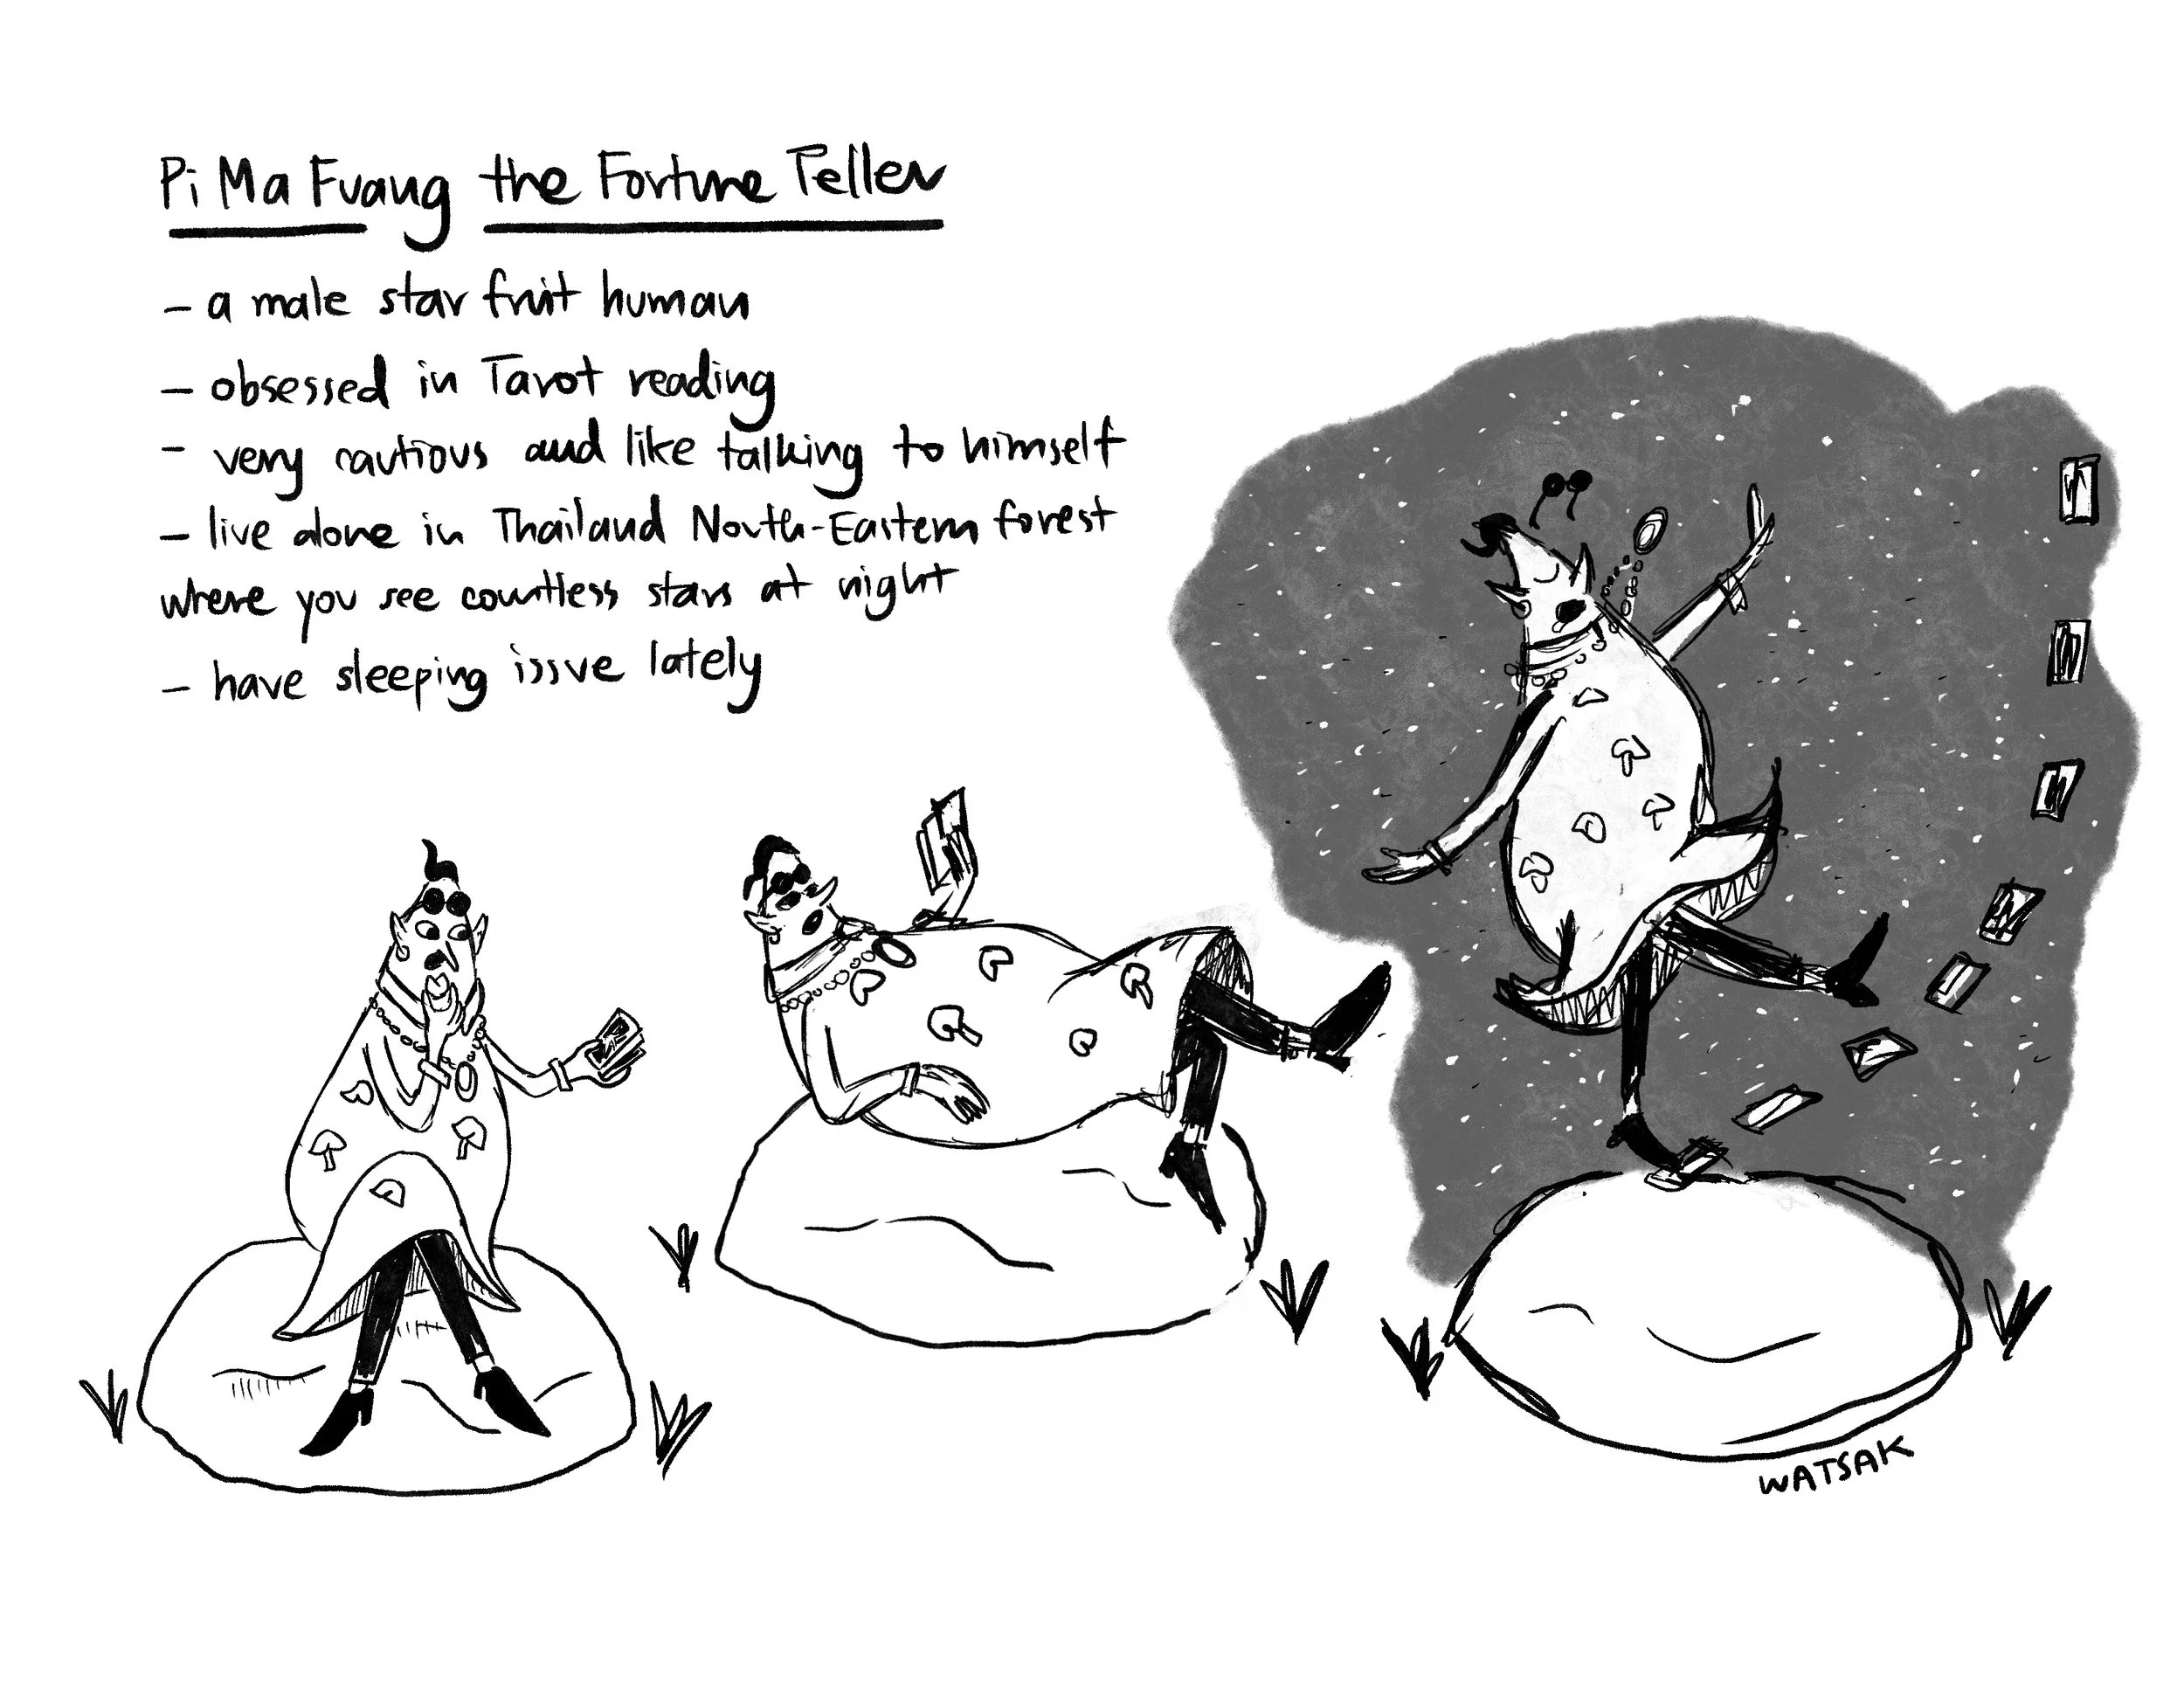 Pi Ma Fuang the Fortune Teller
- a male star fruit human
- obsessed in Tarot reading
- very cautious and like talking to himself
- live alone in Thailand North-Eastern forest
where you see countless stars at night
- have sleeping issue lately
WATSAK